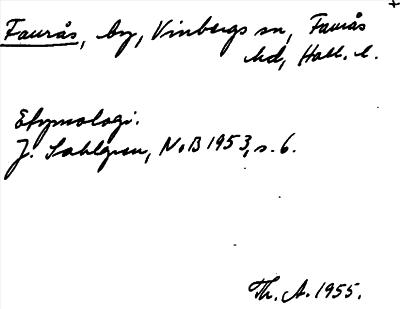 Faurås, by, Vinbergs sn, Faurås
hd, Hall. l.
Etymologi.
J. Sahlgren, NoB 1953, s. 6.
Th. A. 1955.